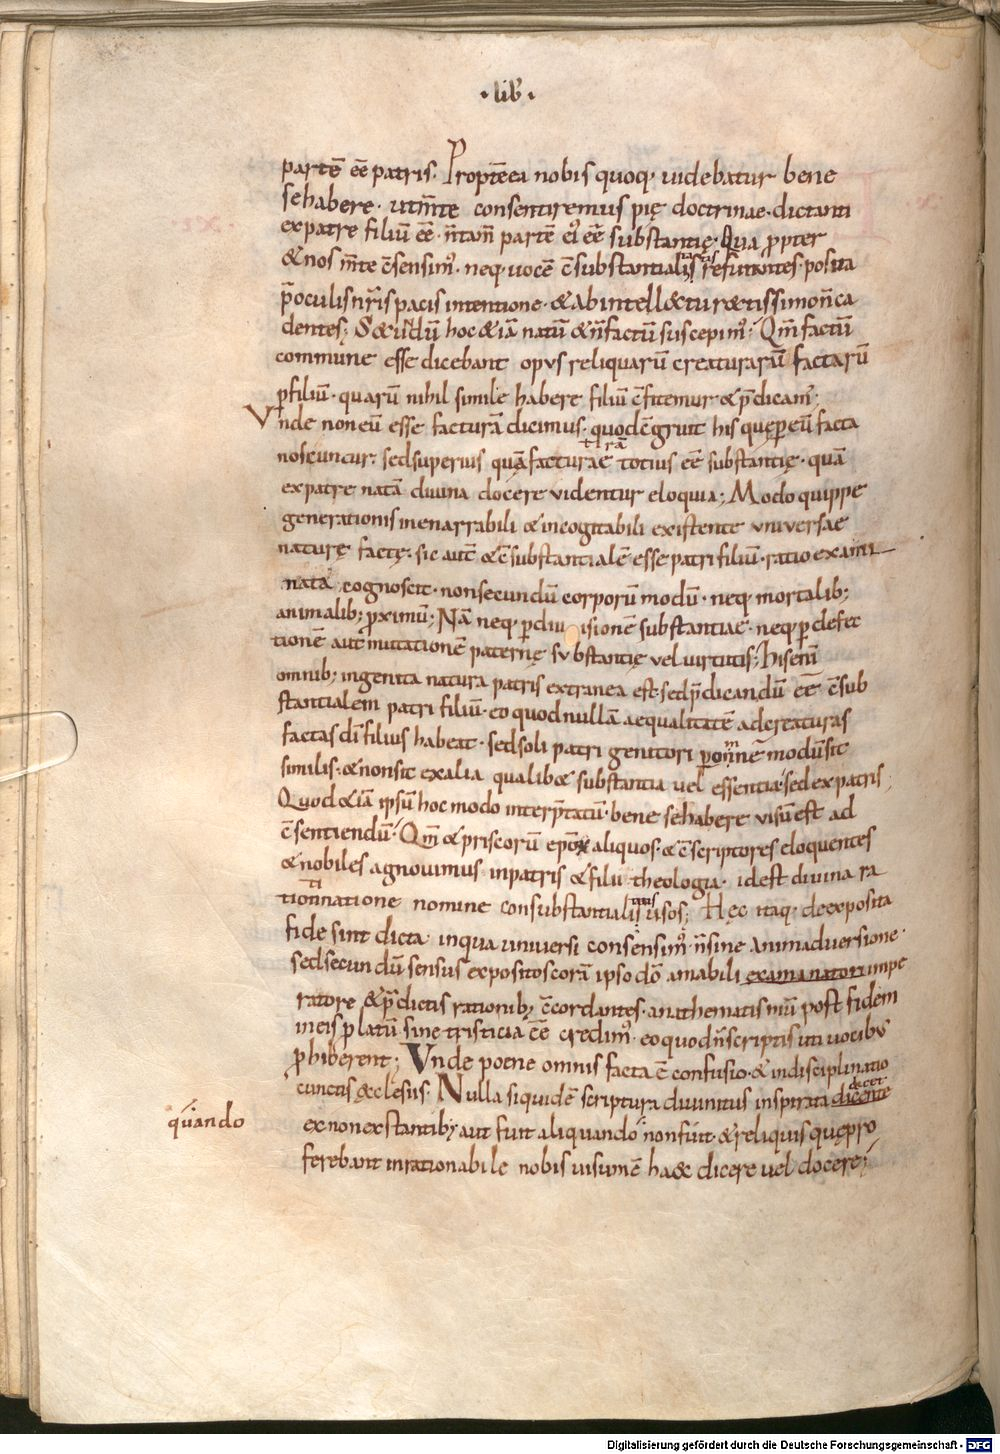 · lib ·
partē eē patris. Proptēea nobis quoq· uidebatur bene
sehabere· utm̄te consentiremus pię doctrinae· dictanti
expatre filiū eē· n̄tam̄ partē ei' eē substantię; Qua ꝓpter
& nos m̄te c̄sensim'· neq· uocē c̄substantialis refutantes· posita
p̄oculis nr̄is pacis intentione· & ab intellectu rectissimo n̄ ca
dentes; Secundū hoc & iā natū & n̄ factū suscepim'; Qm̄ factū
commune esse dicebant opus reliquarū creaturarū factarū
ꝑ filiū· quarū nihil simile habere filiū c̄fitemur & p̄dicam';
Vnde non eū esse facturā dicimus· quod c̄gruit his quę ꝑ eū facta
noscuntur· sed superius quā facturae totius eē substantię· quā
ti rā
ex patre natā diuina docere videntur eloquia; Modo quippe
generationis inenarrabili & incogitabili existente vniversae
naturę factę· sic aut̄ & c̄substantialē esse patri filiū· ratio exami
nata cognoscit· non secundū corporū modū· neq· mortalib;
animalib; ꝓximū; Nā neq· ꝑ diuisionē substantiae· neq· ꝑ defec
tionē aut mutationē paternę substantię vel virtutis; His enī
omnib; ingenita natura patris extranea est· sed p̄dicandū eē c̄sub
stantialem patri filiū· eo quod nullā aequalitatē ad creaturas
factas dī filius habeat· sed soli patri genitori ꝑ omnē modū sit
similis· & non sit ex alia qualib& substantia vel essentia· sed ex patris;
Quod & iā ipsū hoc modo interp̄tatū· bene sehabere visū est ad
c̄sentiendū; Qm̄ & priscorū ep̄ox aliquos· & c̄scriptores eloquentes
& nobiles agnouimus in patris & filii theologia· id est diuina ra
tionnatione nomine consubstantialis usos; Hęc itaq· de exposita
fide sint dicta· in qua vniversi consensim'· n̄ sine animadversione·
sed secundū sensus expositos corā ipso dō amabili examinatori impe
ratore & p̄dictis rationib; c̄cordantes· anathematismū post fidem
in eis ꝓlatū sine tristicia eē credim'· eo quod n̄ scriptis uti uocibus
ꝓhiberent; Vnde poene omnis facta ē confusio· & indisciplinatio
cunctis ęclesiis· Nulla siquidē scriptura diuinitus inspirata dicente
docet
quando
ex non extantib; aut fuit aliquando non fuit· & reliquis quę pro
ferebant inrationabile nobis visum ē haec dicere vel docere;
Digitalisierung gefördert durch die Deutsche Forschungsgemeinschaft - DFG